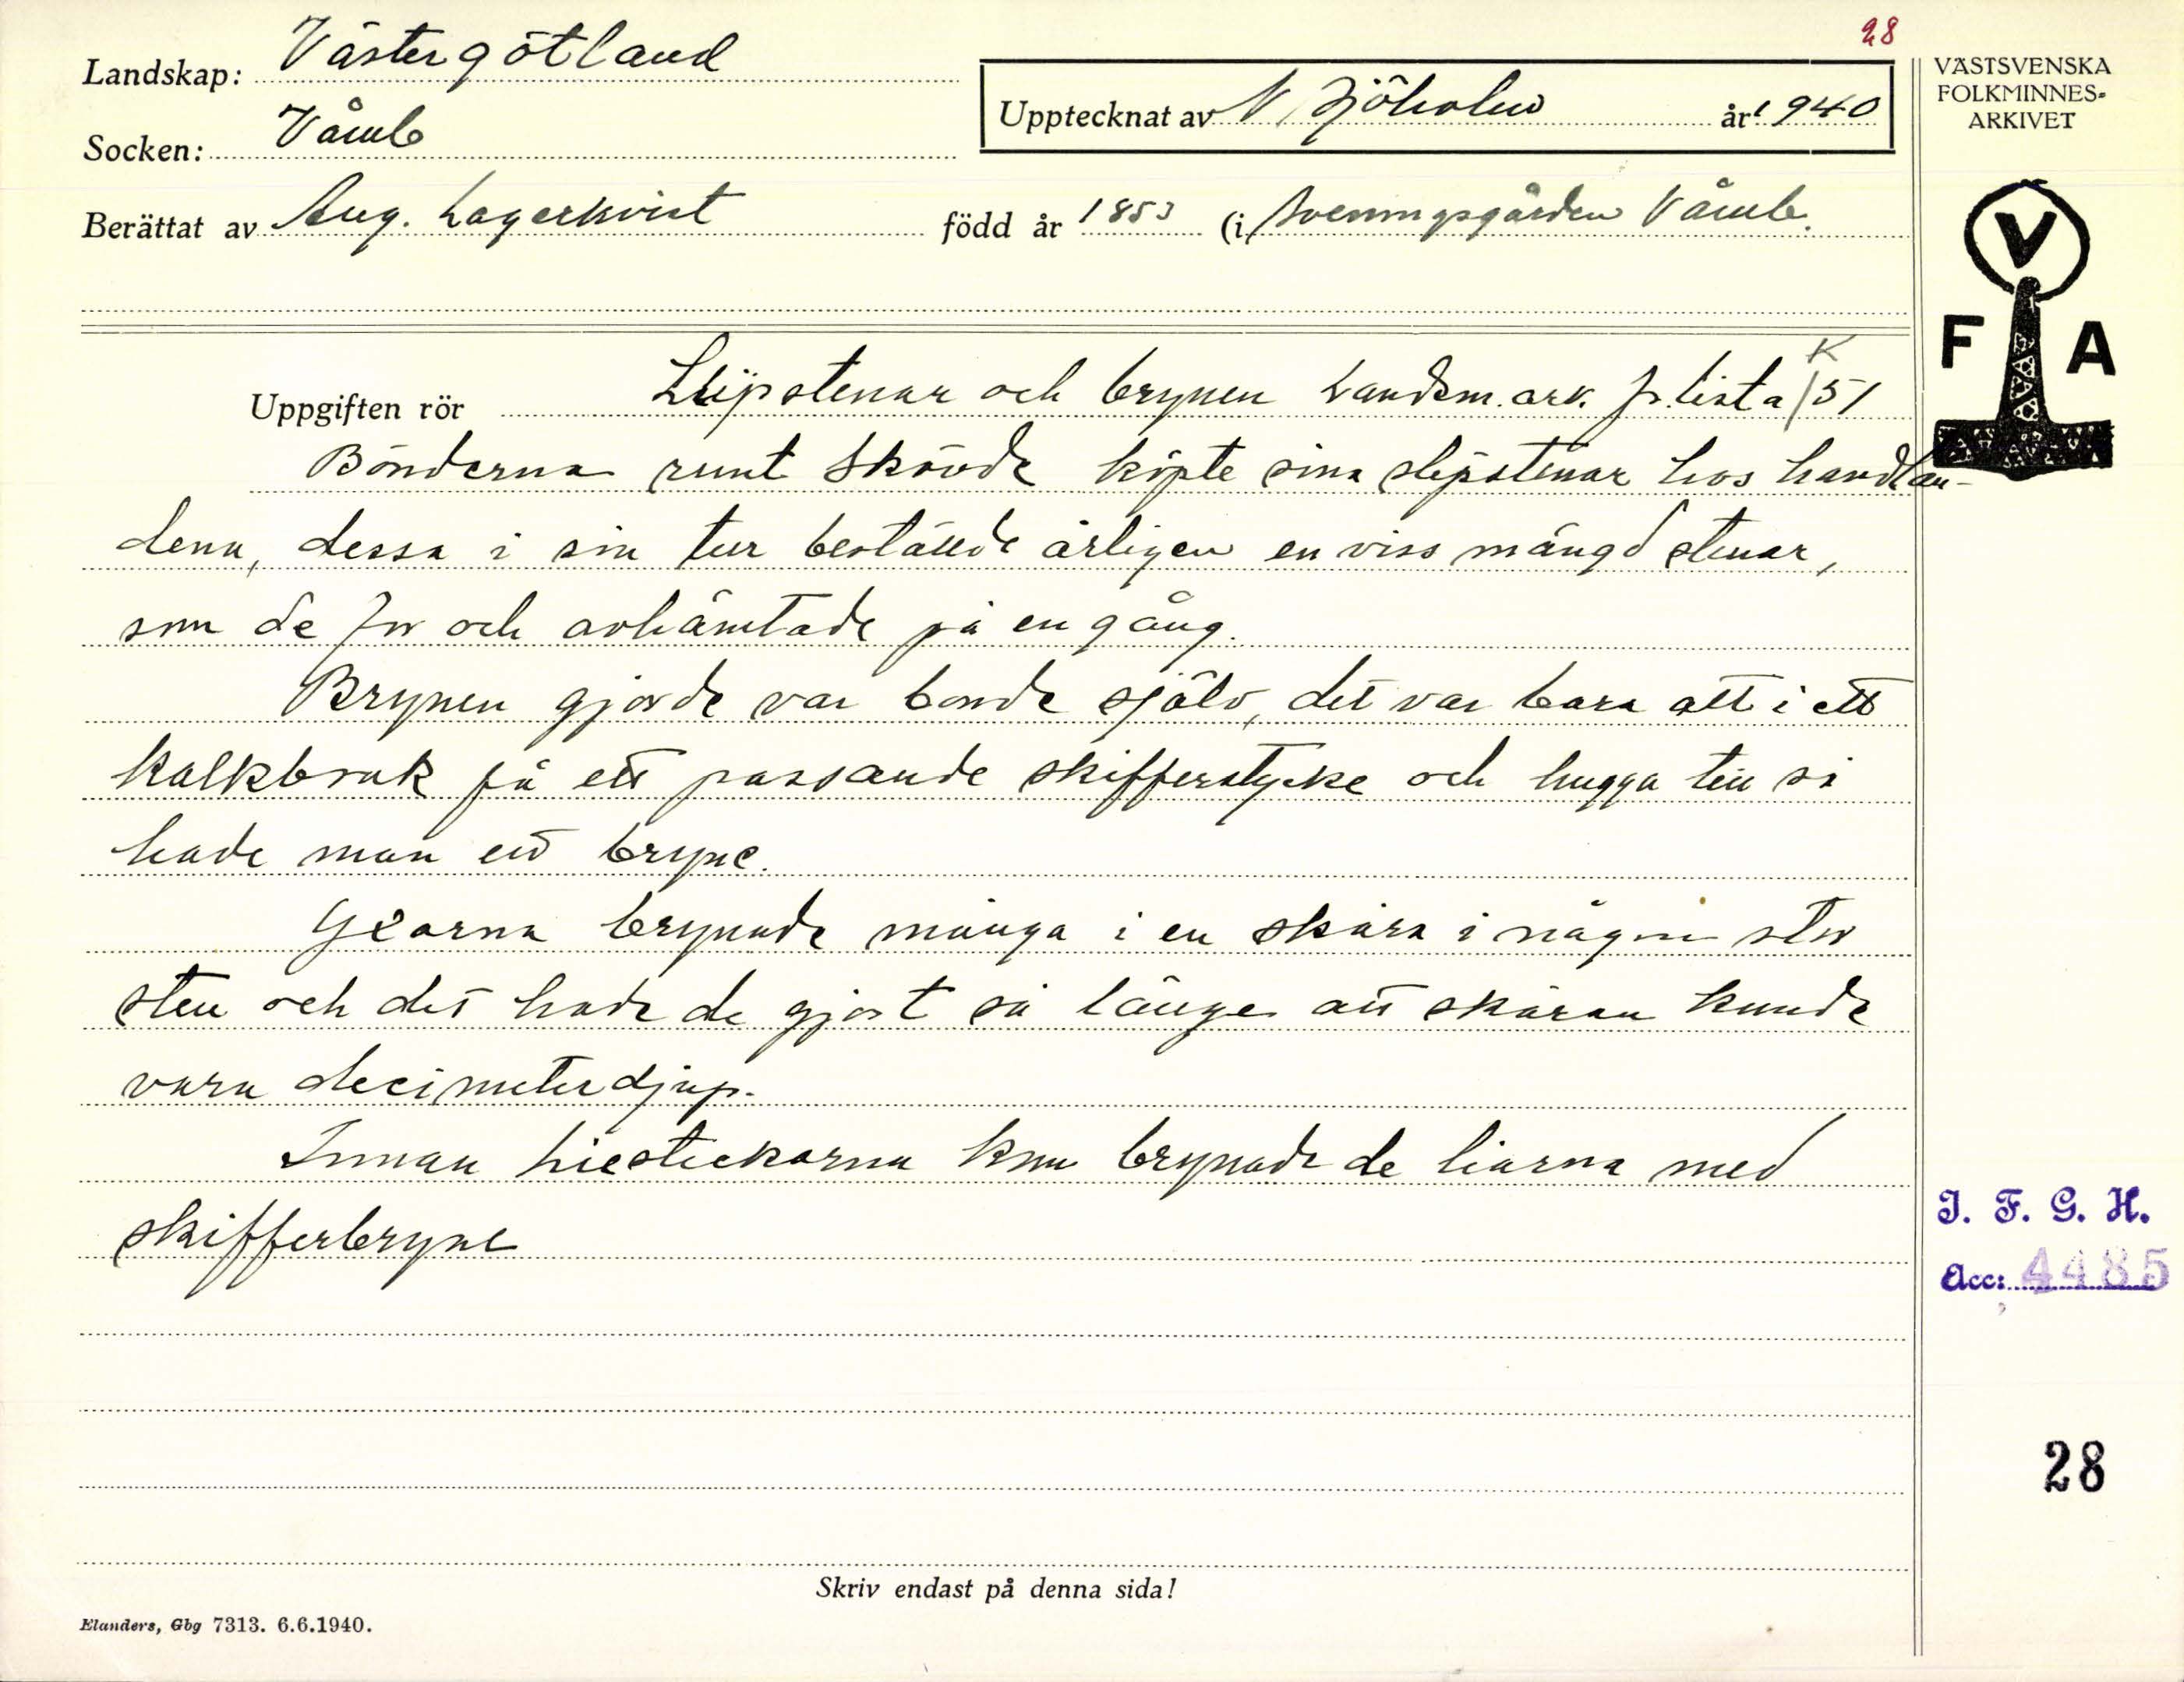 28
Landskap: Västergötland
Socken: Våmb
Upptecknat av N Sjöholm år 1940
Berättat av Aug. Lagerkvist född år 1853 (i Sveningsgården Våmb.
VÄSTSVENSKA
FOLKMINNES=
ARKIVET
V
F A
Uppgiften rör Slipstenar och brynen Landsm. ark. fr. lista K/51
Bönderna runt Skövde köpte sina slipstenar hos handlan-
dena, dessa i sin tur beställde årligen en viss mängd stenar,
som de for och avhämtade på en gång.
Brynen gjorde var bonde själv, det var bara att i ett
kalkbrott få ett passande skifferstycke och hugga till så
hade man ett bryne.
Yxorna brynade många i en skåra i någon stor
sten och det hade de gjort så länge att skåran kunde
vara decimeterdjup.
Innan liestickorna kom brynade de liarna med
skifferbryne
I. F. G. H.
Acc: 4485
28
Skriv endast på denna sida!
Elanders, Gbg 7313. 6.6.1940.